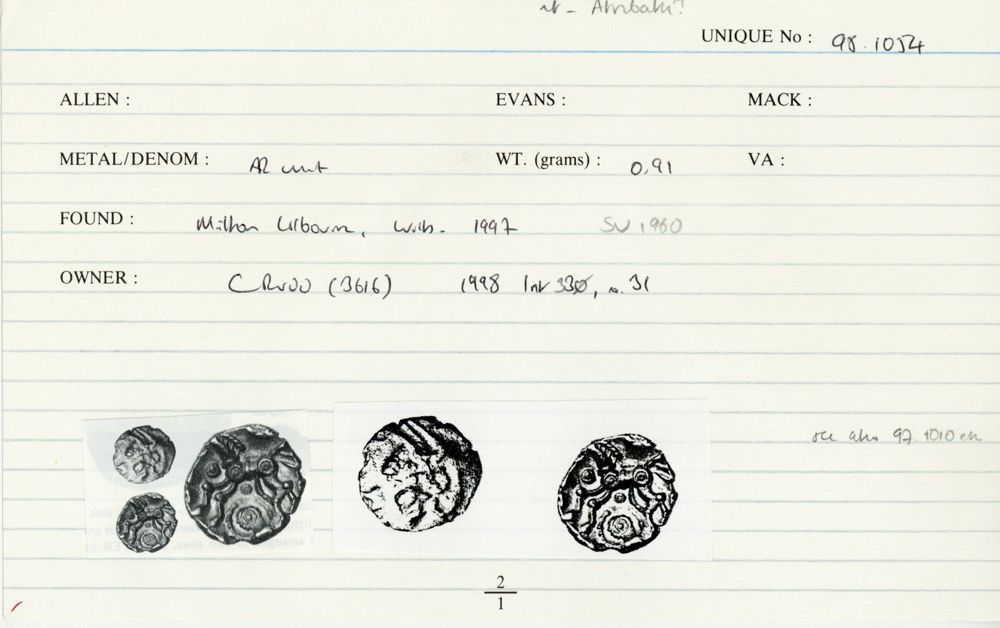 Atrebatic?
UNIQUE No : 98.1054
ALLEN : EVANS : MACK :
METAL/DENOM : AR unit WT. (grams) : 0,91 VA :
FOUND : Milton Lilbourne, Wilts. 1997 SU 1960
OWNER : 1998 no. 31
see also 97.1010
2
1